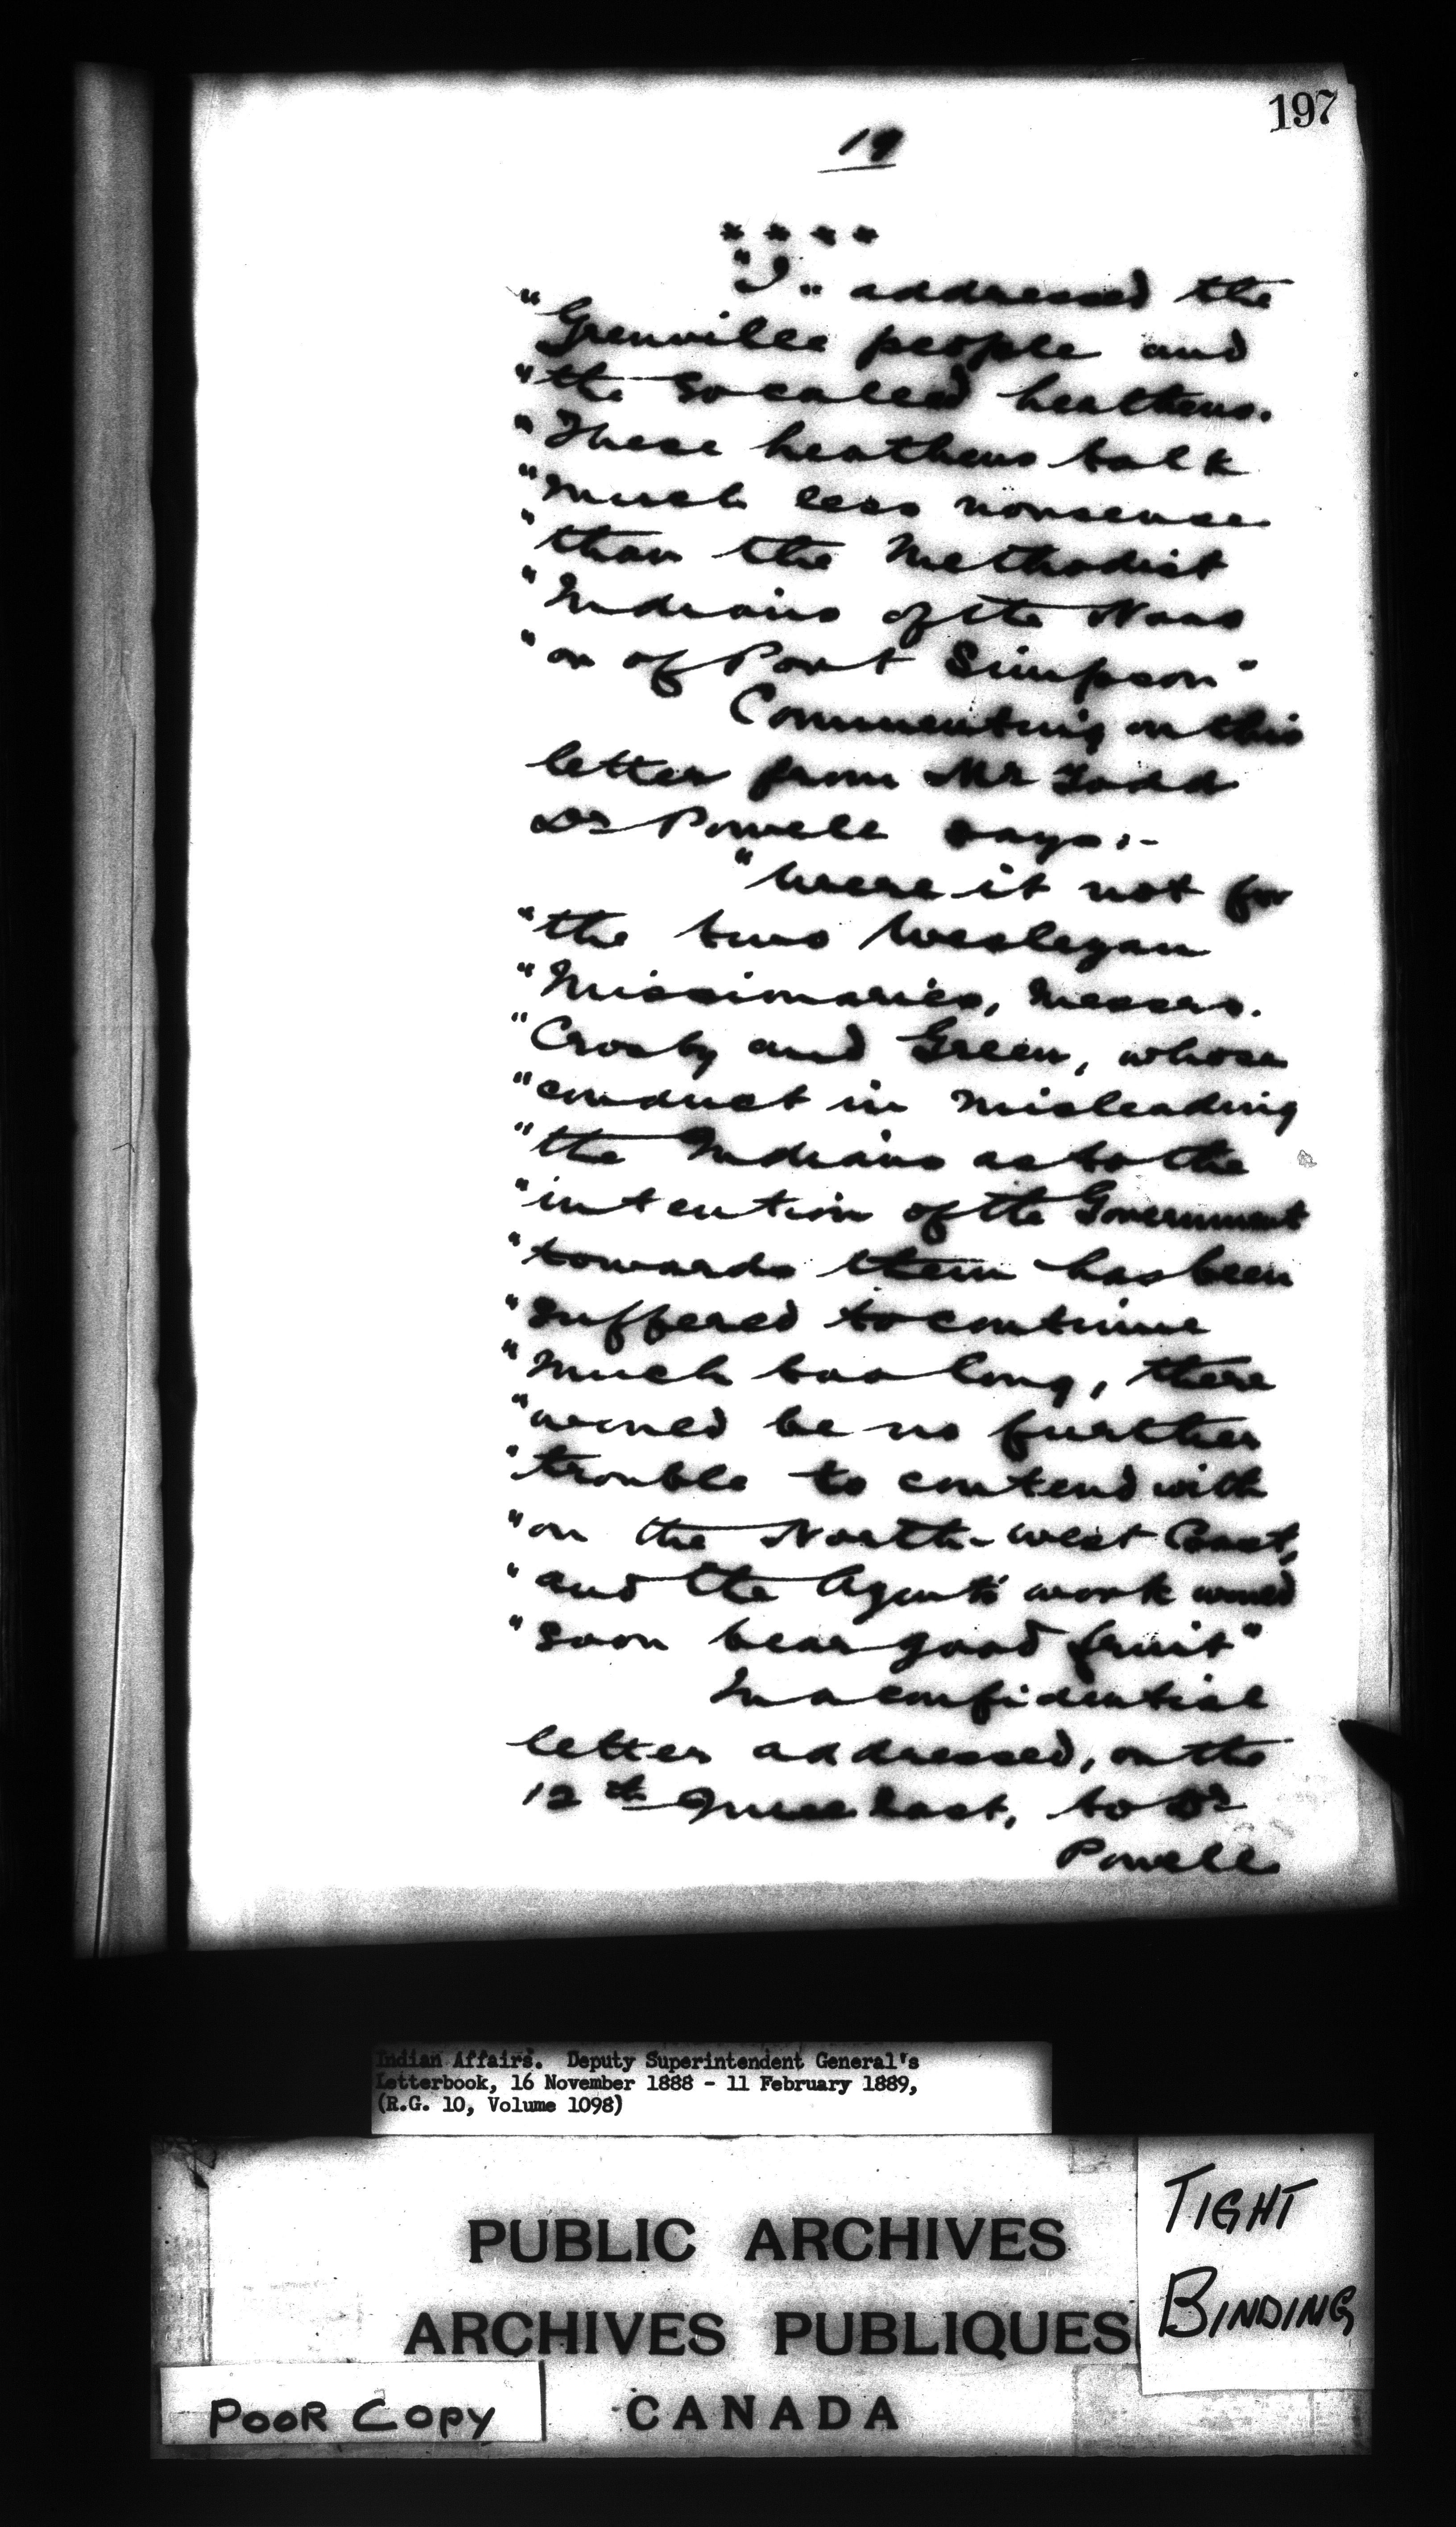 197
19
* * * *
"I" addressed the
"Grenville people and
"the so called heathens.
"These heathens talk
"much less nonsense
"than the Methodist
"Indians of the Naas
"or of Port Simpson"
Commenting on this
letter from Mr Todd
Dr Powell says:-
"Were it not for
"the two Wesleyan
"Missionaries, Messrs.
"Crosby and Green, whose
"conduct in misleading
"the Indians as to the
"intention of the Government
"towards them has been
"suffered to continue
"much too long, there
"would be no further
"trouble to contend with
"on the North-west Coast,
"and the Agent's work would
"soon bear good fruit"
In a confidential
letter addressed, on the
12th June last, to Dr
Powell
Indian Affairs. Deputy Superintendent General's
Letterbook, 16 November 1888 - 11 February 1889,
(R.G. 10, Volume 1098)
PUBLIC ARCHIVES
ARCHIVES PUBLIQUES
CANADA
TIGHT
BINDING
POOR COPY